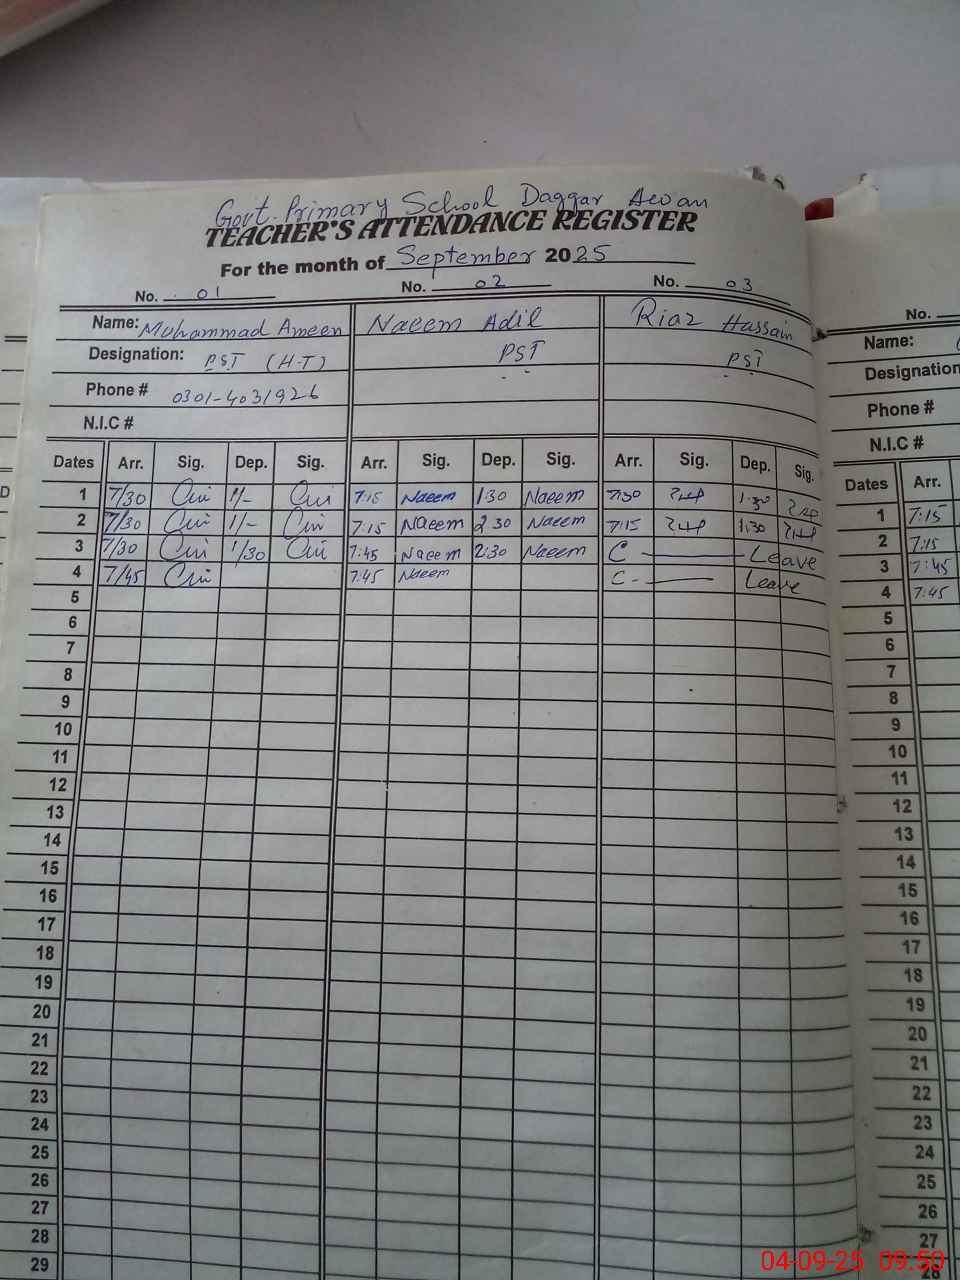 Govt. Primary School Daggar Awan
TEACHER'S ATTENDANCE REGISTER
For the month of September 2025
No. 01 No. 02 No. 03
Name: Mohammad Ameen Naeem Adil Riaz Hussain
Designation: PST (H-T) PST PST
Phone # 0301-4031926
N.I.C #
Dates Arr. Sig. Dep. Sig. Arr. Sig. Dep. Sig. Arr. Sig. Dep. Sig.
1 7/30 1/- 7:15 Naeem 1:30 Naeem 7:30 1:30
2 7/30 1/- 7:15 Naeem 2 30 Naeem 7:15 1:30
3 7/30 1/30 7:45 Naeem 2:30 Naeem C Leave
4 7/45 7:45 Naeem C Leave
5
6
7
8
9
10
11
12
13
14
15
16
17
18
19
20
21
22
23
24
25
26
27
28
29
No.
Name:
Designation
Phone #
N.I.C #
Dates Arr.
1 7:15
2 7:15
3 7:45
4 7:45
5
6
7
8
9
10
11
12
13
14
15
16
17
18
19
20
21
22
23
24
25
26
27
28
D
04-09-25 09:50